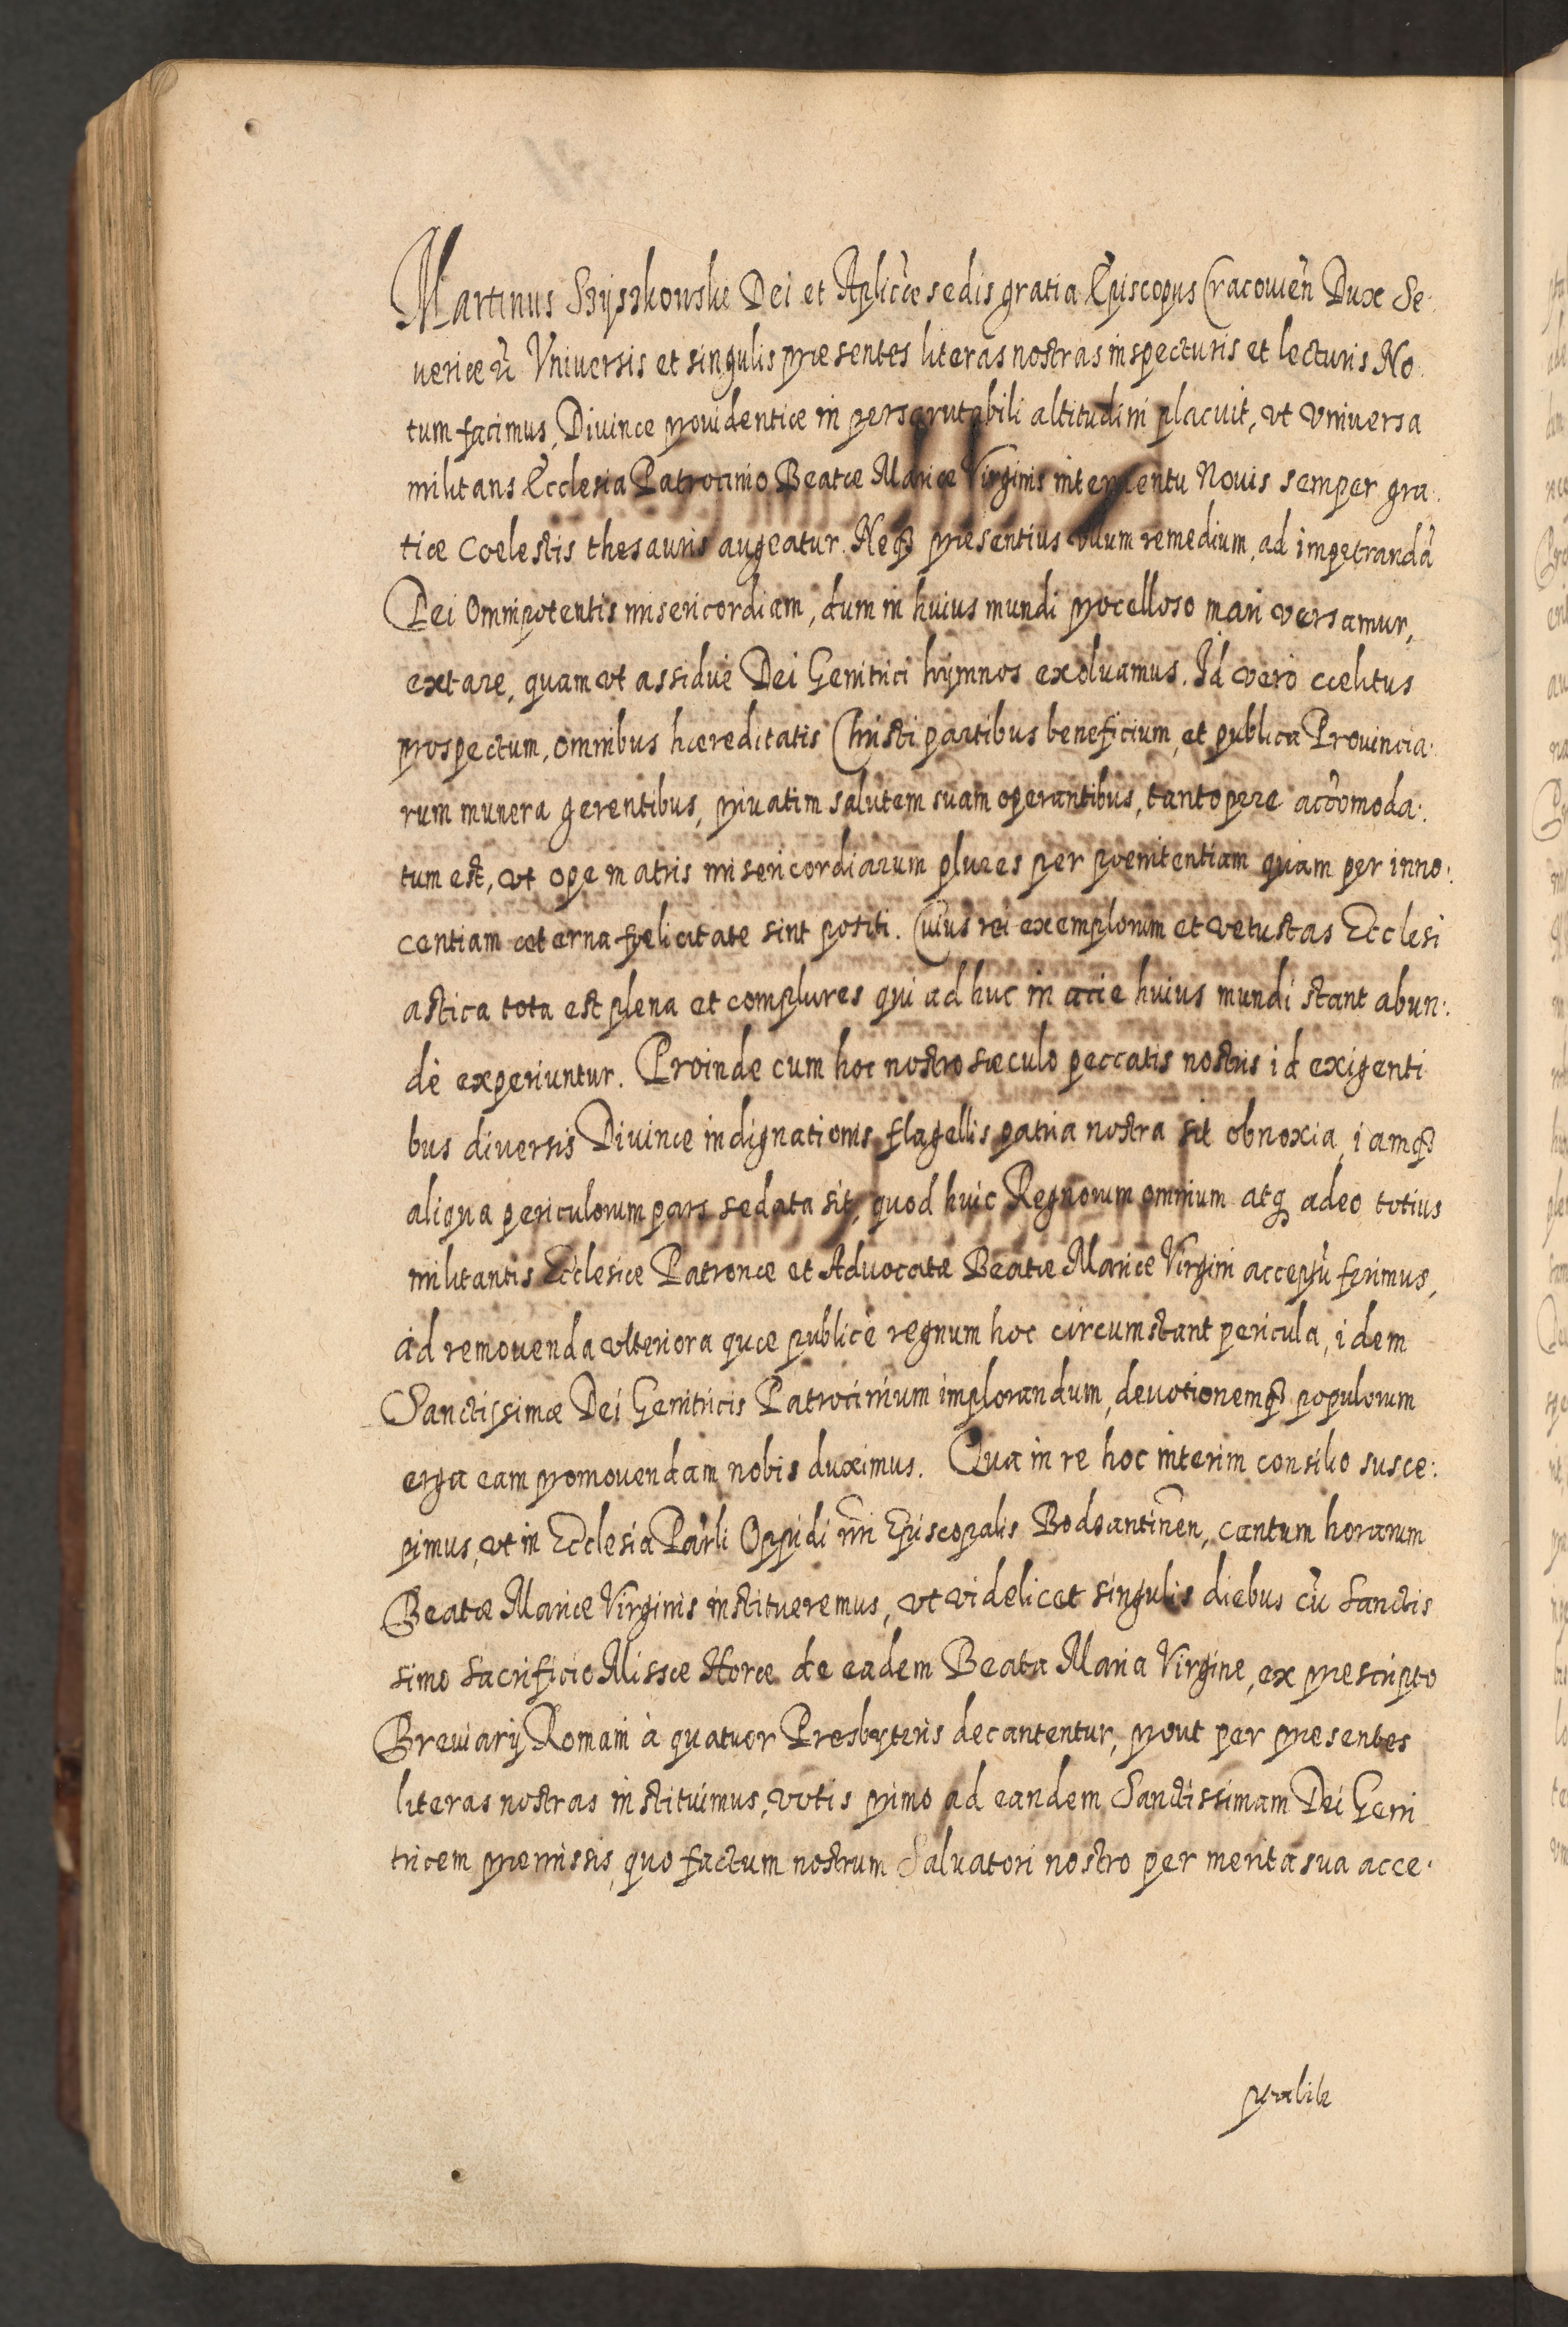 Martinus Szyszkowski Dei et Aplicæ sedis gratia Episcopus Cracouieñ Dux Se:
ueriæñ Vniuersis et singulis præsentes literas nostras inspecturis et lecturis No:
tum facimus, Diuinæ prouidentiæ in perscrutabili altitudini placuit, vt vniuersa
militans Ecclesia Patrocinio Beatæ Mariæ Virginis interuentu Nouis semper gra:
tiæ Coelestis thesauris augeatur. Neq3 præsentius vllum remedium, ad impetrandã
Dei Omnipotentis misericordiam, dum in huius mundi procelloso mari versamur,
extare, quam vt assidué Dei Genitrici hymnos exoluamus. Id veró cælitus
prospectum, omnibus hæreditatis Christi partibus beneficium, et publica Prouincia:
rum munera gerentibus, priuatim salutem suam operantibus, tantopere accõmoda:
tum est, vt ope matris misericordiarum plures per poenitentiam quám per inno:
centiam æterna fœlicitate sint positi. Cuius rei exemplorum et vetustas Ecclesi
astica tota est plena et complures qui ad huc in acie huius mundi stant abun:
dé experiuntur. Proinde cum hoc nostro sæculo peccatis nostris id exigenti
bus diuersis Diuinæ indignationis flagellis patria nostra sit obnoxia, iamq3
aliqua periculorum pars sedata sit, quod huic Regnorum omnium atq3 adeo totius
militantis Ecclesiæ Patronæ et Aduocatæ Beatæ Mariæ Virgini acceptũ ferimus,
ad remouenda vlteriora quæ publicè regnum hoc circumstant pericula, idem
Sanctissimæ Dei Genitricis Patrocinium implorandum, deuotionemq3 populorum
erga eam promouendam nobis duximus. Qua in re hoc interim consilio susce:
pimus, vt in Ecclesia Parli Oppidi nri Episcopalis Bodzantineñ, cantum horarum
Beatæ Mariæ Virginis institueremus, vt videlicet singulis diebus cũ Sanctis
simo Sacrificio Missæ Horæ de eadem Beata Maria Virgine, ex præscripto
Breuiarij Romani à quatuor Presbyteris decantentur, prout per præsentes
literas nostras instituimus, votis primo ad eandem Sanctissimam Dei Geni
tricem præmissis, quo factum nostrum Saluatori nostro per merita sua acce:
ptabile